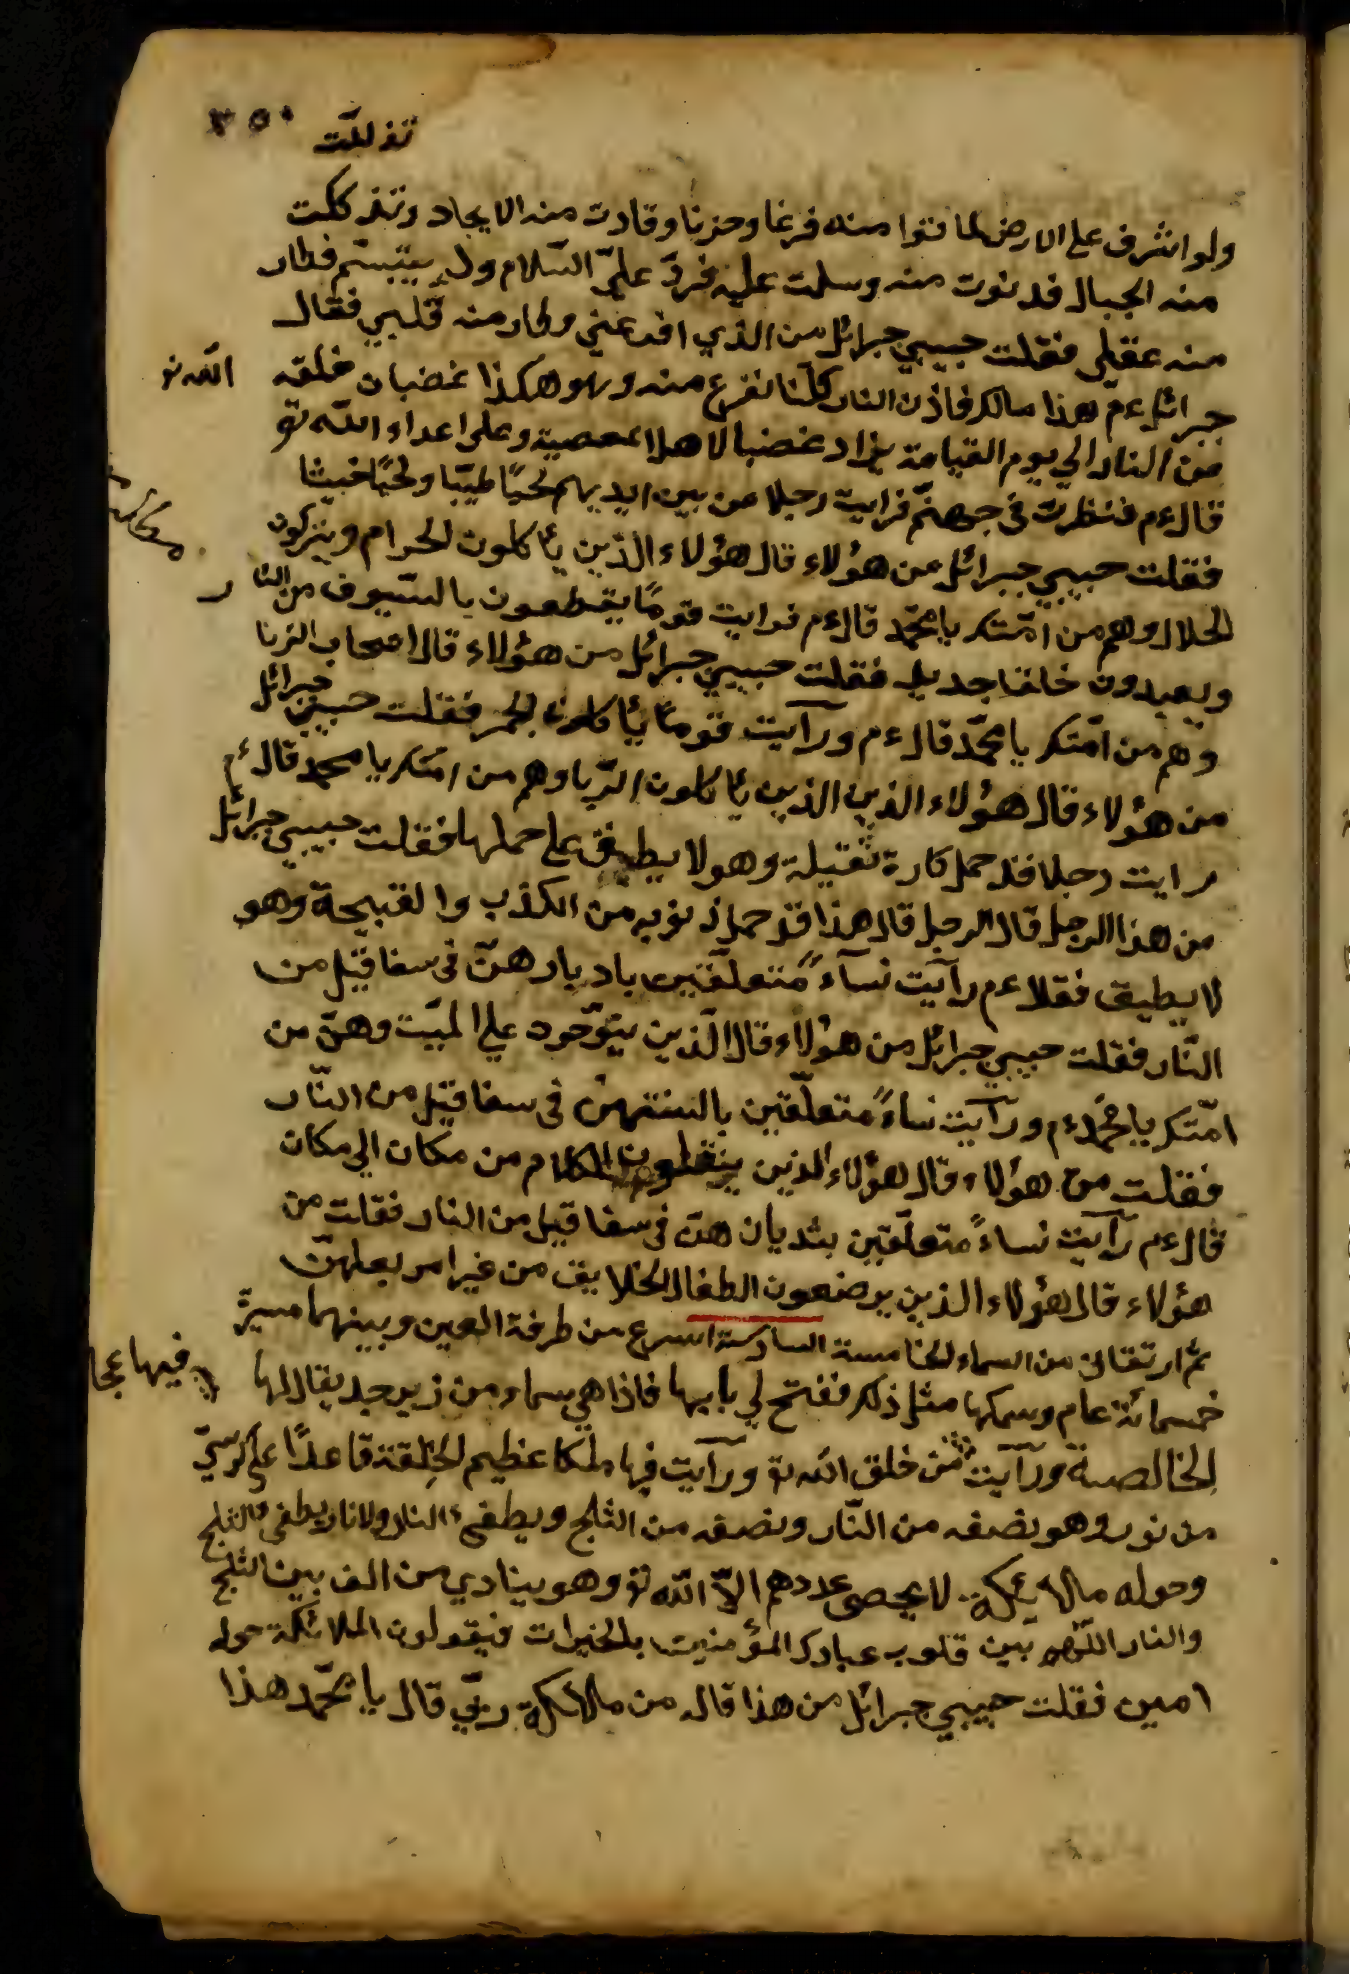 ٣٥٠
تذللت
ولو اشرف على الارض لماتوا منه فزعا وحزنا وقادت منه الايجاد وتذككت
منه الجبال فدنوت منه وسلمت عليه فردّ عليّ السّلام ولم يتبسّم فطار
منه عقلي فقلت حبيبي جبرائل من الذي افزعني وطار منه قلبي فقال
جبرائل ءم هذا مالك خاذن النار كلّنا نفزع منه وهو هكذا غضبان خلقه الله تو
من النار الي يوم القيامة يزاد غضبا لاهل المعصية وعلى اعداء الله تو
قال ءم فنظرت في جهنّم فرايت رجلا من بين ايديهم لحيًا طيّبا ولحيًا خبيثا
فقلت حبيبي جبرائل من هؤلاء قال هؤلاء الذين يأكلون الحرام ويتركون
الحلال وهم من امّتك يا محمّد قال ءم فرايت قومًا يقطعون بالسّيوف من النار
ويعيدون خلقا جديد فقلت حبيبي جبرائل من هؤلاء قال اصحاب الزنا
وهم من امّتك يا محمّد قال ءم ورآيت قومًا يأكلون الجمر فقلت حبيبي جبرائل
من هؤلاء قال هؤلاء الذين الذين يأكلون الرّبا وهم من امّتك يا محمد قال ءم
رايت رجلا قد حمل كارة ثقيلة وهو لا يطيق على حملها فقلت حبيبي جبرائل
من هذا الرجل قال الرجل قال هذا قد حمل ذنوبه من الكذب والقبيحة وهو
لا يطيق فقلا ءم رآيت نسآءً متعلّقين بادبارهنّ في سفاقيل من
النّار فقلت حبيبي جبرائل من هؤلاء قال الّذين ينوّحود علي الميّت وهنّ من
امّتك يا محمّد ءم ورآيت نساءً متعلّقين بالسنتهنّ في سفاقيل من النّار
فقلت من هؤلاء قال هؤلاء الذين ينقلون الكلام من مكان الي مكان
قال ءم رآيت نساءً متعلّقين بثديان هنّ في سفاقيل من النار فقلت من
هؤلاء قال هؤلاء الذين يرضعون الطفال الخلايق من غير امر بعلهنّ
ثم ارتقانى من السماء الخامسة السادسة اسرع من طرفة العين وبينهما مسيرة
خمسمائة عام وسمكها مثل ذلك ففتح لي بابها فاذا هي سماء من زبرجد يقال لها
الخالصة ورآيت فيها عجا من خلق الله تو ورآيت فيها ملكا عظيم الخلقة قاعدًا على كرسيّ
من نور وهو نصفه من النّار ونصفه من الثلج ويطفى النار ولا نار يطفى الثلج
وحوله ملائكة لا يحصى عددهم الاّ الله تو وهو ينادي من الف بين الثلج
والنار اللّهم بين قلوب عبادك المؤمنين بالخيرات فيقولون الملائكة حوله
امين فقلت حبيبي جبرائل من هذا قال من ملائكة ربّي قال يا محمّد هذا